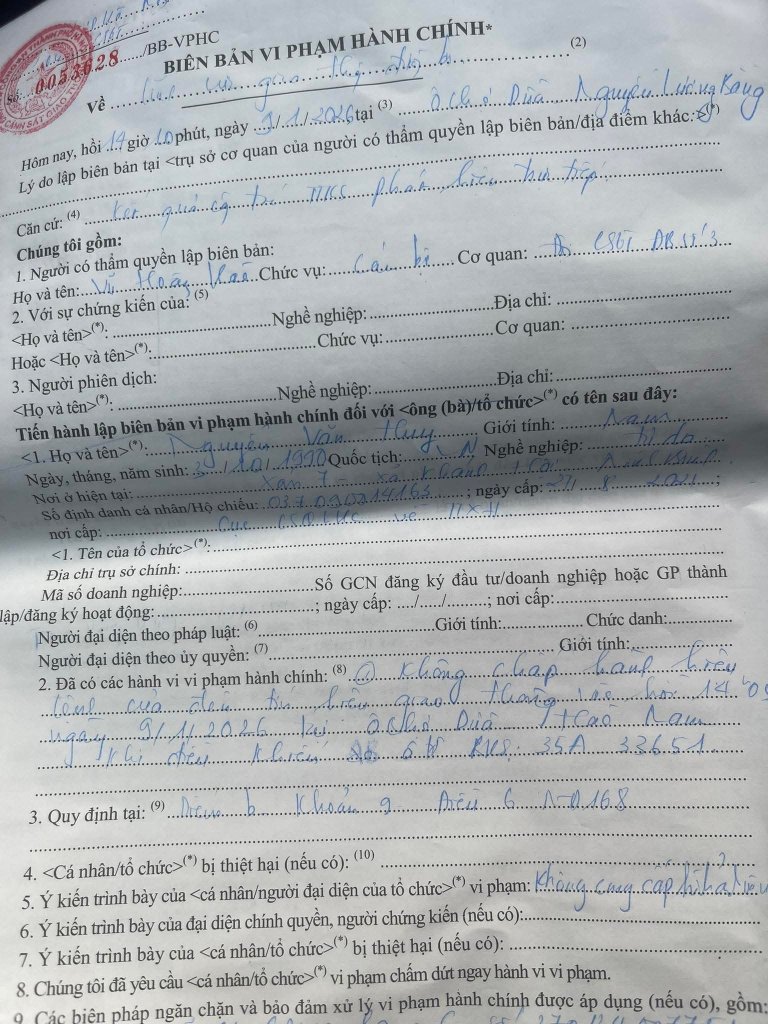 Số: 0053628 /BB-VPHC
BIÊN BẢN VI PHẠM HÀNH CHÍNH*
Về (2)
Hôm nay, hồi 14 giờ 10 phút, ngày 9/1/2026 tại (3) Ô Chợ Dừa Nguyễn Lương Bằng
Lý do lập biên bản tại <trụ sở cơ quan của người có thẩm quyền lập biên bản/địa điểm khác:>(*)
Căn cứ: (4) Kết quả phát hiện trực tiếp
Chúng tôi gồm:
1. Người có thẩm quyền lập biên bản:
Họ và tên: Vũ Hoàng Chức vụ: Cán bộ Cơ quan: Đội CSGT ĐB số 3
2. Với sự chứng kiến của: (5)
<Họ và tên>(*): Nghề nghiệp: Địa chỉ:
Hoặc <Họ và tên>(*): Chức vụ: Cơ quan:
3. Người phiên dịch:
<Họ và tên>(*): Nghề nghiệp: Địa chỉ:
Tiến hành lập biên bản vi phạm hành chính đối với <ông (bà)/tổ chức>(*) có tên sau đây:
<1. Họ và tên>(*): Nguyễn Văn Huy Giới tính: Nam
Ngày, tháng, năm sinh: 3/10/1990 Quốc tịch: VN Nghề nghiệp: Tự do
Nơi ở hiện tại: Xóm 7 - xã Khánh Ninh Bình
Số định danh cá nhân/Hộ chiếu: 037090214163; ngày cấp: 8 2021;
nơi cấp: Cục CSQLHC về TTXH
<1. Tên của tổ chức>(*):
Địa chỉ trụ sở chính:
Mã số doanh nghiệp: Số GCN đăng ký đầu tư/doanh nghiệp hoặc GP thành
lập/đăng ký hoạt động: ; ngày cấp: ..../...../.........; nơi cấp:
Người đại diện theo pháp luật: (6) Giới tính: Chức danh:
Người đại diện theo ủy quyền: (7) Giới tính:
2. Đã có các hành vi vi phạm hành chính: (8) ① Không chấp hành hiệu
lệnh của đèn tín hiệu giao thông hồi 14
ngày 9/1/2026 tại Ô Chợ Dừa
Khi điều khiển ô tô BKS: 35A 33651
3. Quy định tại: (9) Điểm b Khoản 9 Điều 6 NĐ168
4. <Cá nhân/tổ chức>(*) bị thiệt hại (nếu có): (10)
5. Ý kiến trình bày của <cá nhân/người đại diện của tổ chức>(*) vi phạm: Không cung cấp
6. Ý kiến trình bày của đại diện chính quyền, người chứng kiến (nếu có):
7. Ý kiến trình bày của <cá nhân/tổ chức>(*) bị thiệt hại (nếu có):
8. Chúng tôi đã yêu cầu <cá nhân/tổ chức>(*) vi phạm chấm dứt ngay hành vi vi phạm.
9. Các biện pháp ngăn chặn và bảo đảm xử lý vi phạm hành chính được áp dụng (nếu có), gồm: